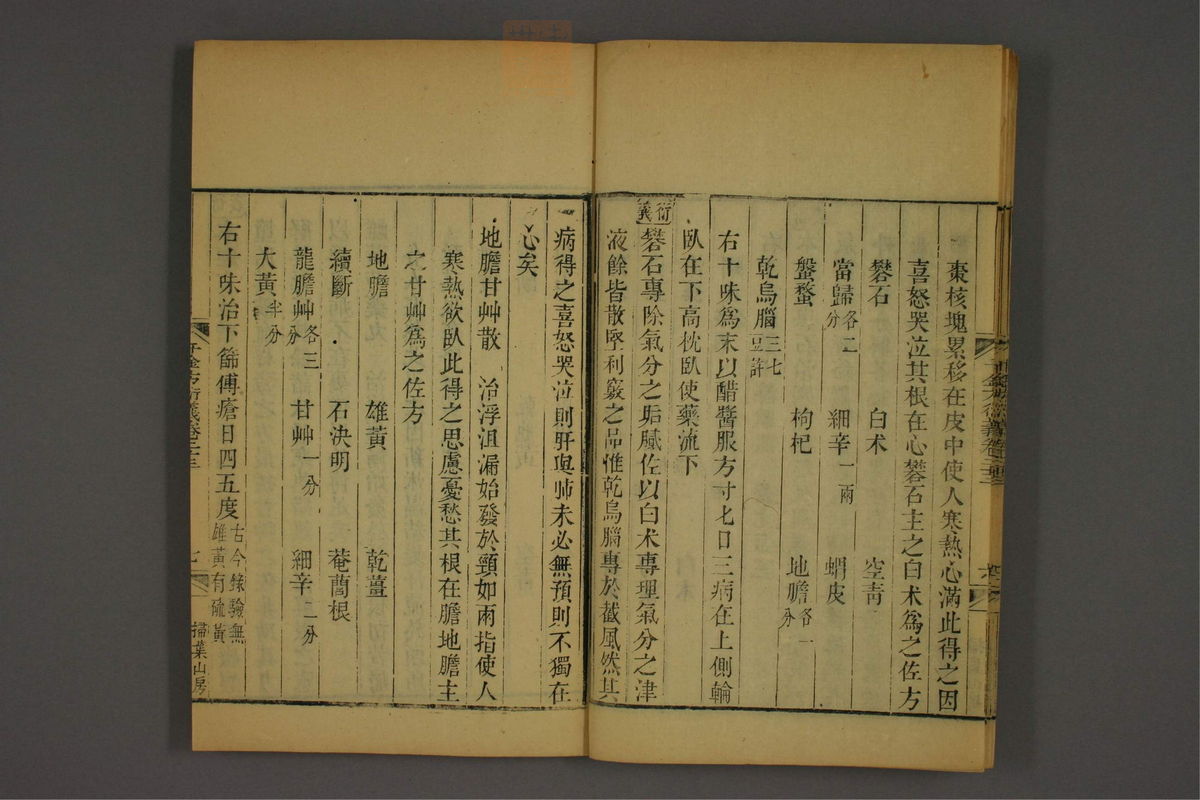 棗核塊累移在皮中使人寒熱心滿此得之因
喜怒哭泣其根在心礬石主之白朮爲之佐方
礬石 白朮 空青
當歸各二分 細辛一兩 蝟皮
蟹蝥 枸杞 地膽各一分
乾烏腦三七豆許
右十味爲末以醋醬服方寸匕日三病在上側輪
臥在下高枕臥使藥流下
衍義
礬石專除氣分之垢膩佐以白朮專理氣分之津
液餘皆散堅利竅之品惟乾烏腦專於截風然其
病得之喜怒哭泣則肝與肺未必無預則不獨在
心矣
地膽甘艸散 治浮沮漏始發於頸如兩指使人
寒熱欲臥此得之思慮憂愁其根在膽地膽主
之甘艸爲之佐方
地膽 雄黃 乾薑
續斷 石決明 菴藺根
龍膽艸各三分 甘艸一分 細辛二分
大黃半分
右十味治下篩傅瘡日四五度古今錄驗無雄黃有硫黃
千金方衍義卷二十三
七
掃葉山房